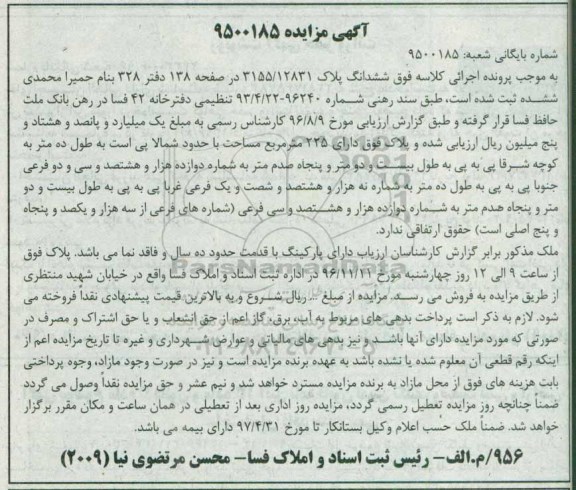 آگهی مزایده ۹۵۰۰۱۸۵
شماره بایگانی شعبه: ۹۵۰۰۱۸۵
به موجب پرونده اجرائی کلاسه فوق ششدانگ پلاک ۳۱۵۵/۱۲۸۳۱ در صفحه ۱۳۸ دفتر ۳۲۸ بنام حمیرا محمدی
شده ثبت شده است، طبق سند رهنی شماره ۹۶۲۴۰-۹۳/۴/۲۲ تنظیمی دفترخانه ۴۲ فسا در رهن بانک ملت
حافظ فسا قرار گرفته و طبق گزارش ارزیابی مورخ ۹۶/۸/۹ کارشناس رسمی به مبلغ یک میلیارد و پانصد و هشتاد و
پنج میلیون ریال ارزیابی شده و پلاک فوق دارای ۲۲۵ مترمربع مساحت با حدود شمالا پی است به طول ده متر به
کوچه شرقا پی به پی به طول بیست و دو متر و پنجاه صدم متر به شماره دوازده هزار و هشتصد و سی و دو فرعی
جنوبا پی به پی به طول ده متر به شماره نه هزار و هشتصد و شصت و یک فرعی غربا پی به پی به طول بیست و دو
متر و پنجاه صدم متر به شماره دوازده هزار و هشتصد و سی فرعی (شماره های فرعی از سه هزار و یکصد و پنجاه
و پنج اصلی است) حقوق ارتفاقی ندارد.
ملک مذکور برابر گزارش کارشناسان ارزیاب دارای پارکینگ با قدمت حدود ده سال و فاقد نما می باشد. پلاک فوق
از ساعت ۹ الی ۱۲ روز چهارشنبه مورخ ۹۶/۱۱/۱۱ در اداره ثبت اسناد و املاک فسا واقع در خیابان شهید منتظری
از طریق مزایده به فروش می رسد. مزایده از مبلغ ... ریال شروع و به بالاترین قیمت پیشنهادی نقداً فروخته می
شود. لازم به ذکر است پرداخت بدهی های مربوط به آب، برق، گاز اعم از حق انشعاب و یا حق اشتراک و مصرف در
صورتی که مورد مزایده دارای آنها باشد و نیز بدهی های مالیاتی و عوارض شهرداری و غیره تا تاریخ مزایده اعم از
اینکه رقم قطعی آن معلوم شده یا نشده باشد به عهده برنده مزایده است و نیز در صورت وجود مازاد، وجوه پرداختی
بابت هزینه های فوق از محل مازاد به برنده مزایده مسترد خواهد شد و نیم عشر و حق مزایده نقداً وصول می گردد
ضمناً چنانچه روز مزایده تعطیل رسمی گردد، مزایده روز اداری بعد از تعطیلی در همان ساعت و مکان مقرر برگزار
خواهد شد. ضمناً ملک حسب اعلام وکیل بستانکار تا مورخ ۹۷/۴/۳۱ دارای بیمه می باشد.
۹۵۶/م.الف- رئیس ثبت اسناد و املاک فسا- محسن مرتضوی نیا (۲۰۰۹)